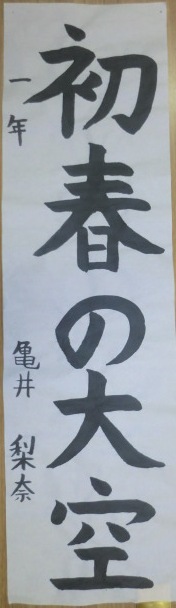 初春の大空
一年
亀井 梨奈